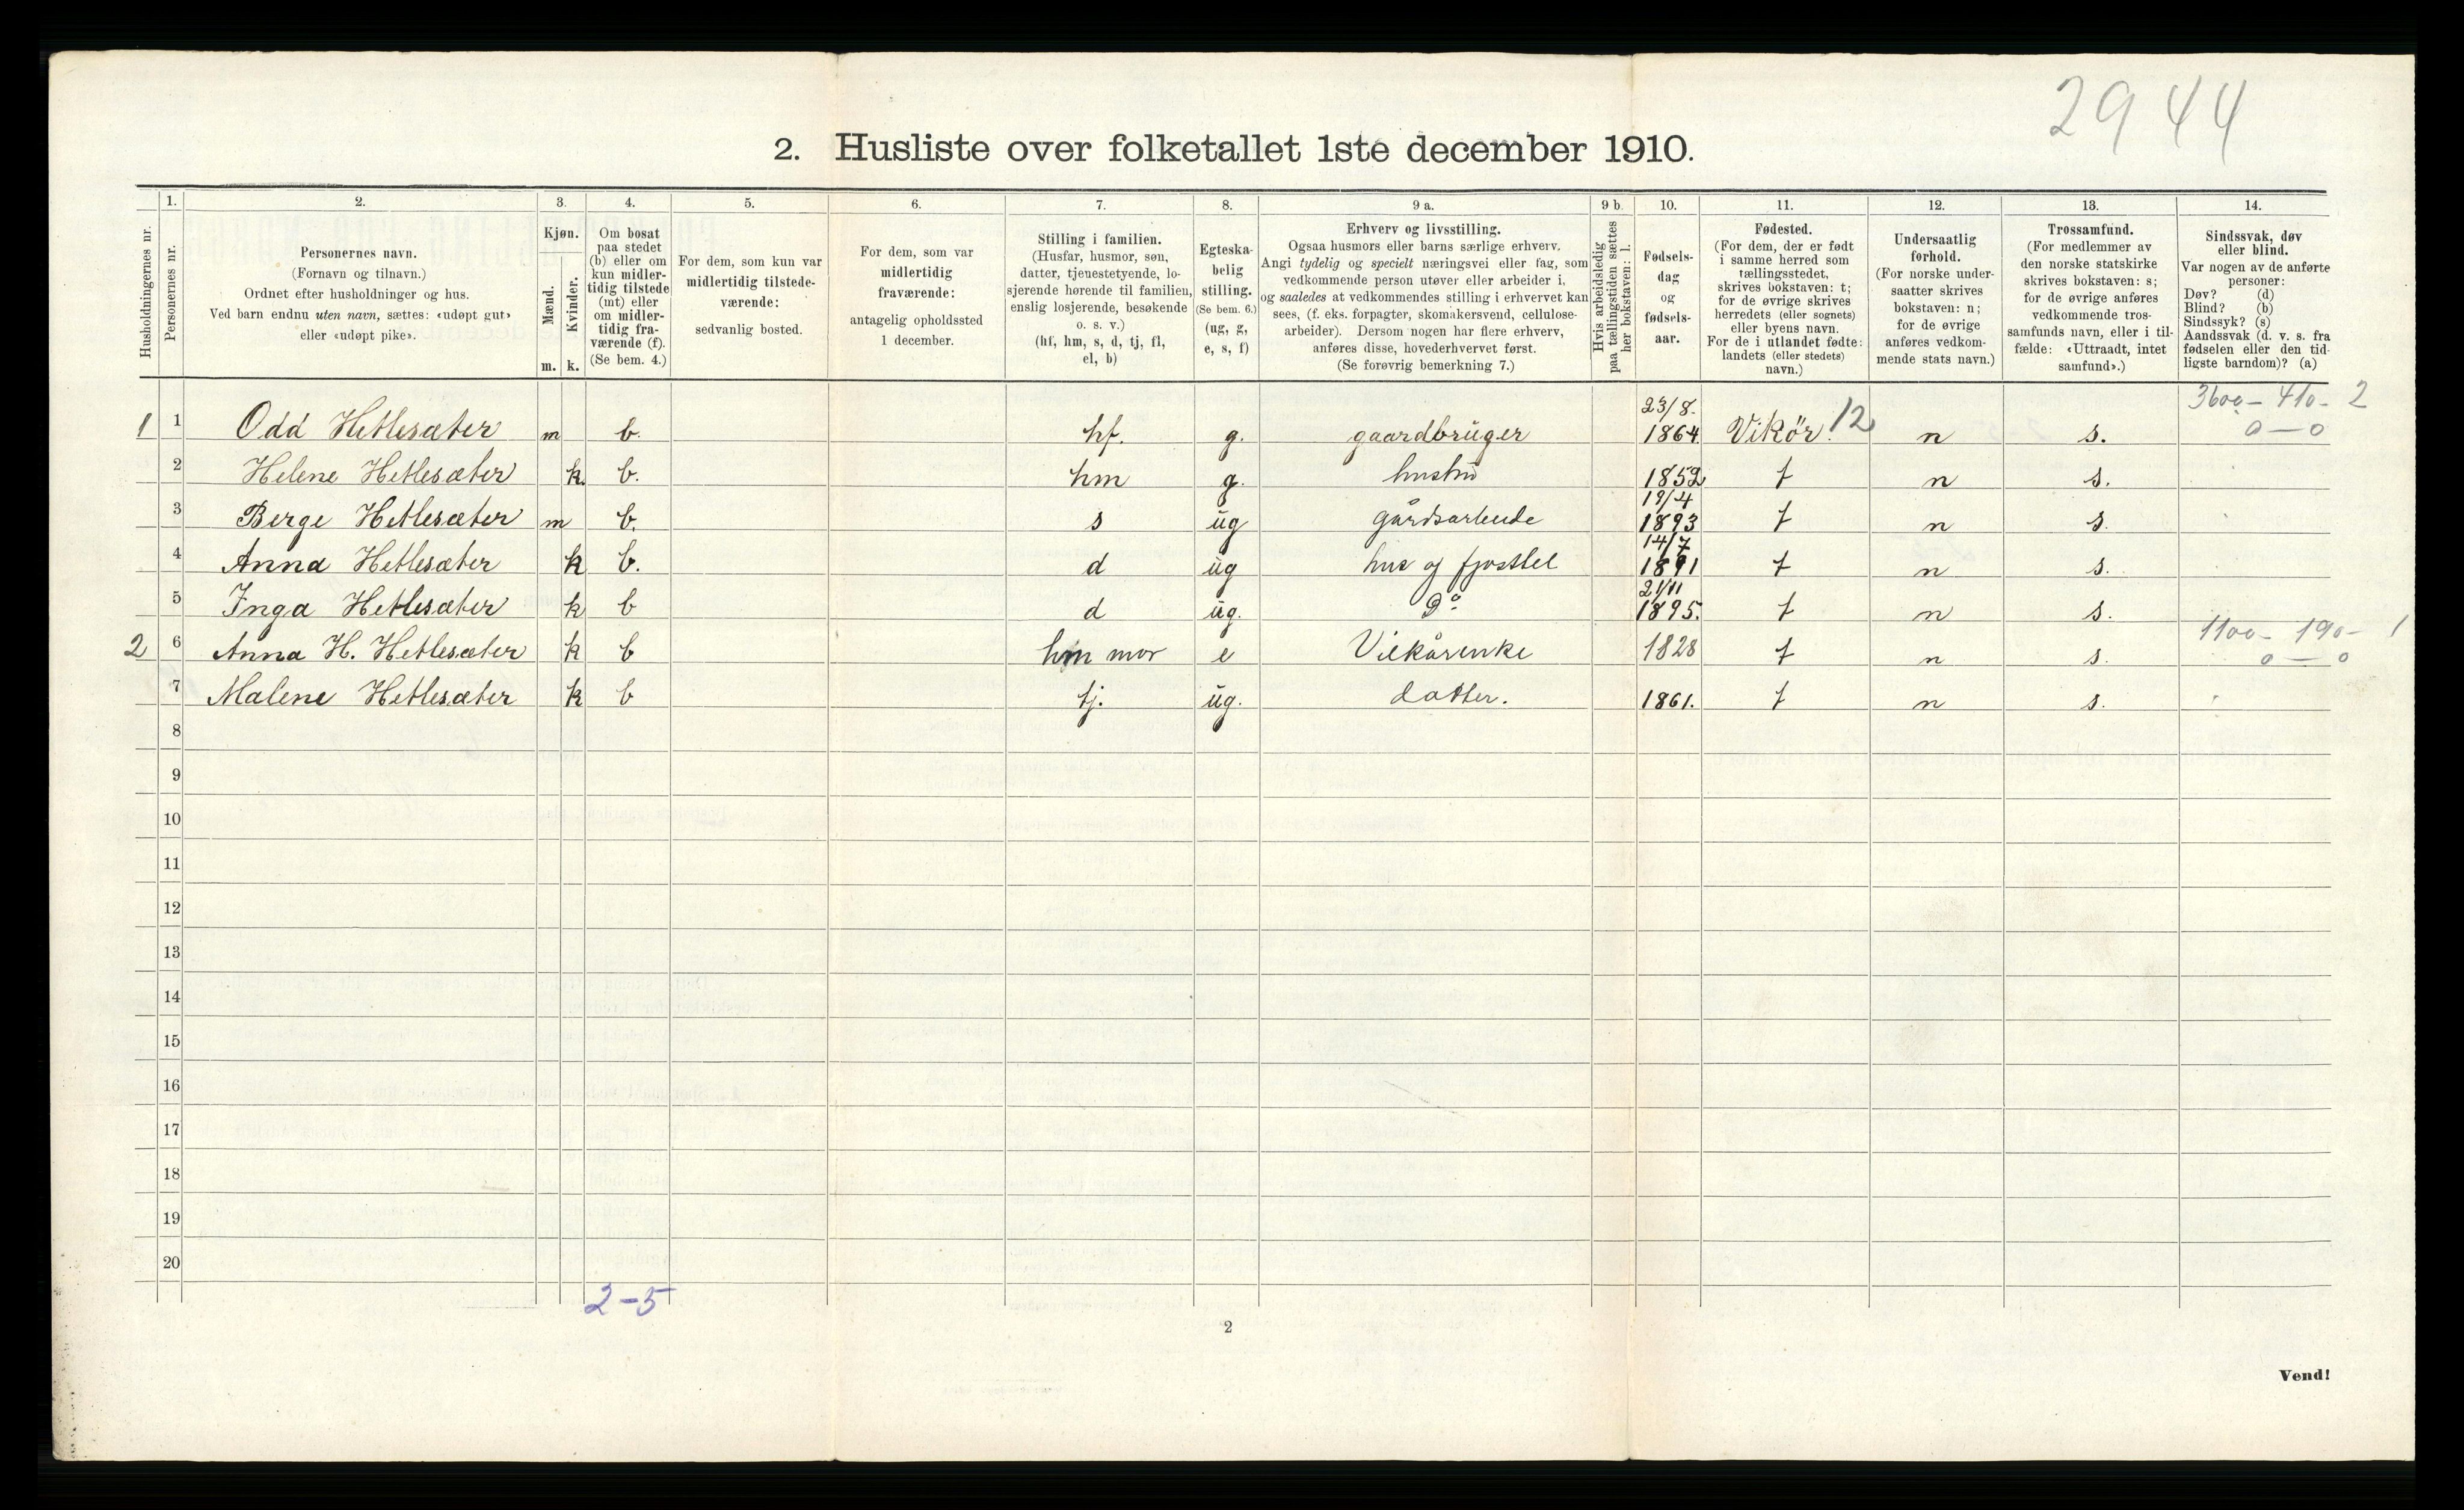 2944
2. Husliste over folketallet 1ste december 1910.
1. 2. 3. 4. 5. 6. 7. 8. 9 a. 9 b. 10. 11. 12. 13. 14.
Husholdningernes nr.
Personernes nr.
Personernes navn.
(Fornavn og tilnavn.)
Ordnet efter husholdninger og hus.
Ved barn endnu uten navn, sættes: «udøpt gut»
eller «udøpt pike».
Kjøn.
Mænd.
Kvinder.
m. k.
Om bosat
paa stedet
(b) eller om
kun midler-
tidig tilstede
(mt) eller
om midler-
tidig fra-
værende (f).
(Se bem. 4.)
For dem, som kun var
midlertidig tilstede-
værende:
sedvanlig bosted.
For dem, som var
midlertidig
fraværende:
antagelig opholdssted
1 december.
Stilling i familien.
(Husfar, husmor, søn,
datter, tjenestetyende, lo-
sjerende hørende til familien,
enslig losjerende, besøkende
o. s. v.)
(hf, hm, s, d, tj, fl,
el, b)
Egteska-
belig
stilling.
(Se bem. 6.)
(ug, g,
e, s, f)
Erhverv og livsstilling.
Ogsaa husmors eller barns særlige erhverv.
Angi tydelig og specielt næringsvei eller fag, som
vedkommende person utøver eller arbeider i,
og saaledes at vedkommendes stilling i erhvervet kan
sees, (f. eks. forpagter, skomakersvend, cellulose-
arbeider). Dersom nogen har flere erhverv,
anføres disse, hovederhvervet først.
(Se forøvrig bemerkning 7.)
Hvis arbeidsledig
paa tællingstiden sættes
her bokstaven: l.
Fødsels-
dag
og
fødsels-
aar.
Fødested.
(For dem, der er født
i samme herred som
tællingsstedet,
skrives bokstaven: t;
for de øvrige skrives
herredets (eller sognets)
eller byens navn.
For de i utlandet fødte:
landets (eller stedets)
navn.)
Undersaatlig
forhold.
(For norske under-
saatter skrives
bokstaven: n;
for de øvrige
anføres vedkom-
mende stats navn.)
Trossamfund.
(For medlemmer av
den norske statskirke
skrives bokstaven: s;
for de øvrige anføres
vedkommende tros-
samfunds navn, eller i til-
fælde: «Uttraadt, intet
samfund».)
Sindssvak, døv
eller blind.
Var nogen av de anførte
personer:
Døv? (d)
Blind? (b)
Sindssyk? (s)
Aandssvak (d. v. s. fra
fødselen eller den tid-
ligste barndom)? (a)
3600 - 410 - 2
1 1 Odd Hetlesæter m b. hf. g. gaardbruger 23/8. 1864. Vikör. 12 n s. 0 — 0
2 Helene Hetlesæter k. b. hm g. hustru 1852 t n s.
3 Berge Hetlesæter m b. s ug gårdsarbeide 19/4 1893 t n s.
4 Anna Hetlesæter k b. d ug hus og fjosstel 14/7 1891 t n s.
5 Inga Hetlesæter k b d ug. Do 21/11 1895. t n s.
1100 - 190 - 1
2 6 Anna H. Hetlesæter k b hm mor e Vilkårenke 1828 t n s. 0 — 0
7 Malene Hetlesæter k b tj. ug. datter. 1861. t n s.
8
9
10
11
12
13
14
15
16
17
18
19
20
2-5
2
Vend!